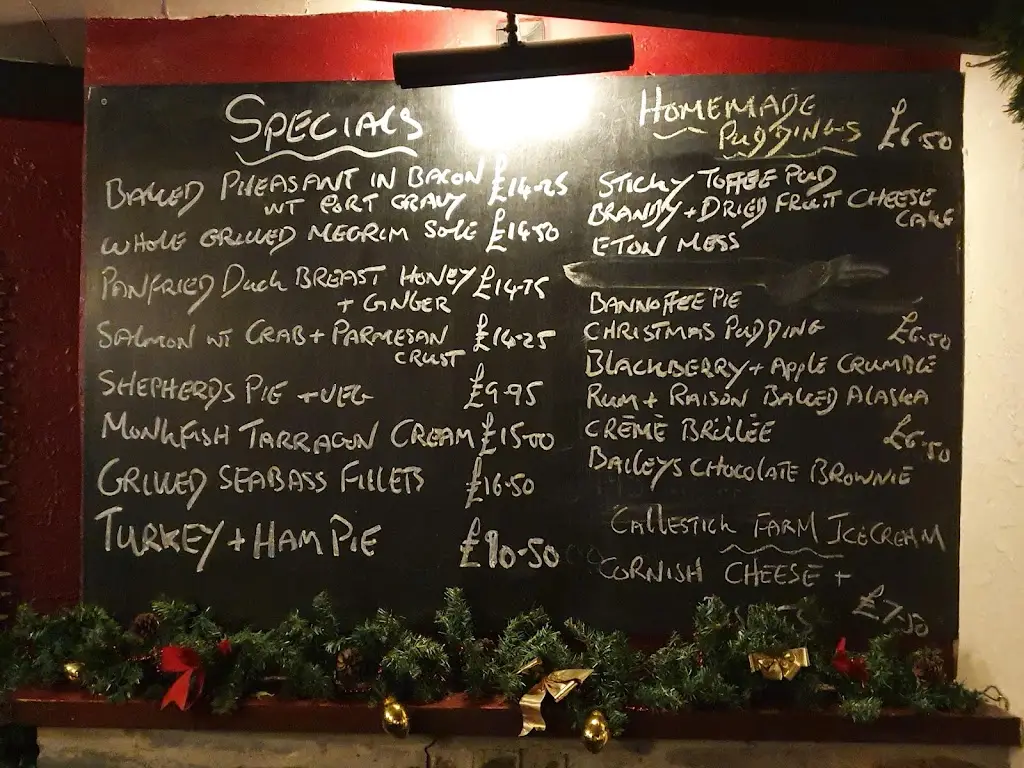 SPECIALS
BAKED PHEASANT IN BACON £14-25
WT PORT GRAVY
WHOLE GRILLED MEGRIM SOLE £14.50
PANFRIED Duck BREAST HONEY £14-75
+ GINGER
SALMON WT CRAB + PARMESAN £14-25
CRUST
SHEPHERDS PIE + VEG £9-95
MONKFISH TARRAGON CREAM £15-00
GRILLED SEABASS FILLETS £16.50
TURKEY + HAM PIE £10-50
HOMEMADE
PUDDINGS £6.50
STICKY TOFFEE PUD
BRANDY + DRIED FRUIT CHEESE
CAKE
ETON MESS
BANNOFFEE PIE
CHRISTMAS PUDDING £6.50
BLACKBERRY + APPLE CRUMBLE
RUM + RAISON BAKED ALASKA
CRÈME BRÛLÉE £6.50
BAILEYS CHOCOLATE BROWNIE
CALLESTICK FARM ICECREAM
CORNISH CHEESE +
£7-50